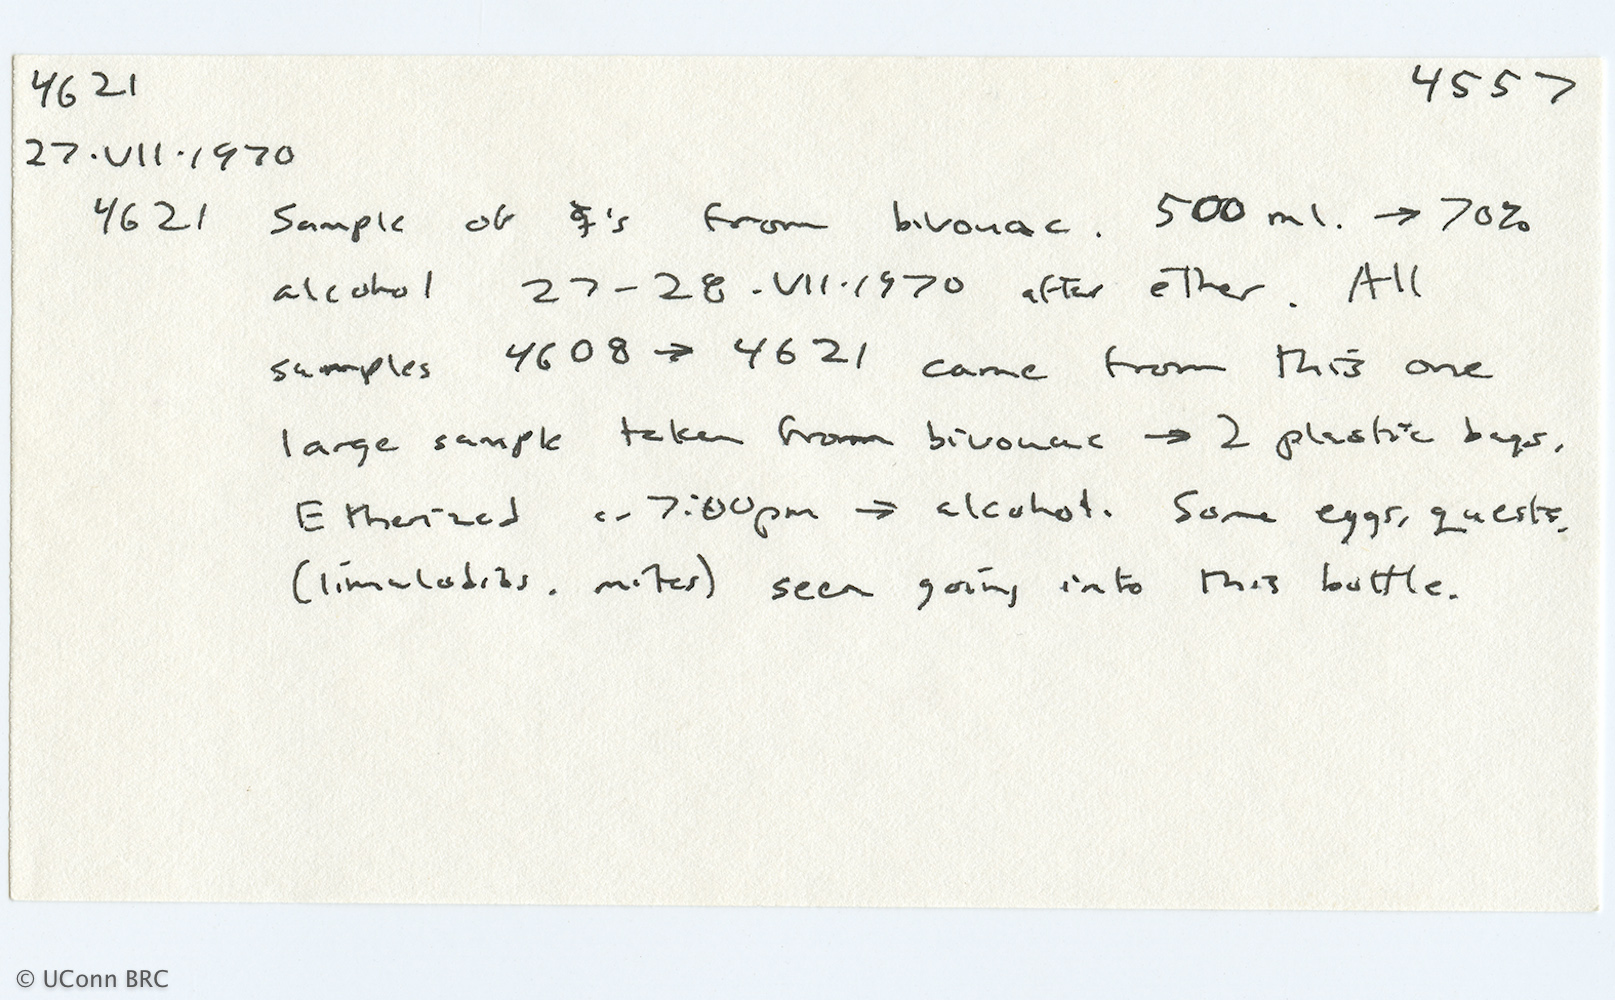 4621 4557
27.VII.1970
4621 Sample of ☿'s from bivouac. 500 ml. → 70%
alcohol 27-28.VII.1970 after ether. All
samples 4608 → 4621 came from this one
large sample taken from bivouac → 2 plastic bags.
Etherized 7:00pm → alcohol. Some eggs, guests,
(limulodids, mites) seen going into this bottle.
© UConn BRC